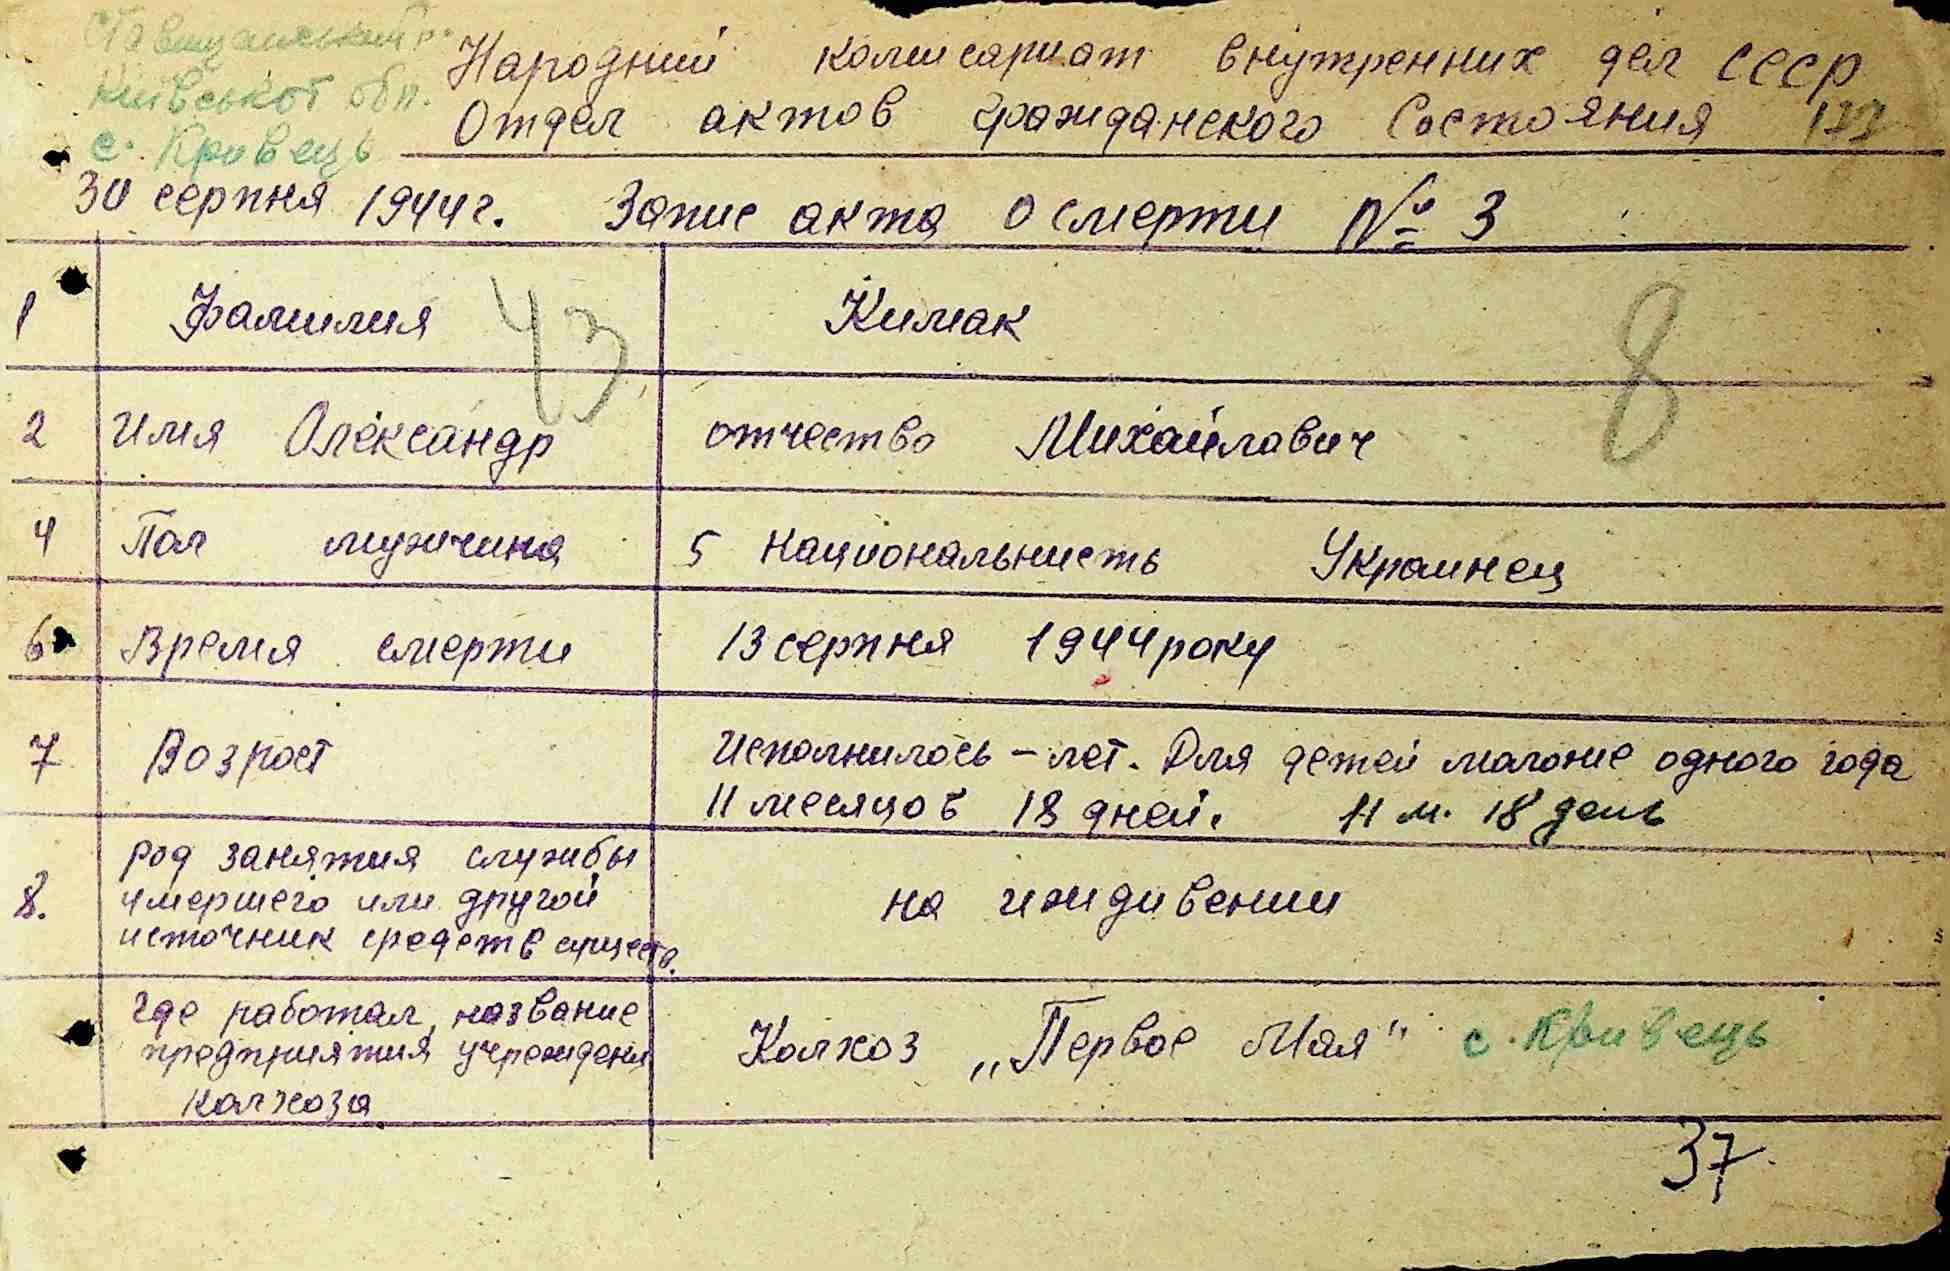 Ставищанський р.
Київської обл.
с. Кривець
Народний комисариат внутренних дел СССР
Отдел актов гражданского Состояния
30 серпня 1944 г. Запис акта о смерти № 3
1 Фамилия 43 Кимак 8
2 имя Олександр отчество Михайлович
4 Пол мужчина 5 Национальность Украинец
6 Время смерти 13 серпня 1944 року
7 Возрост Исполнилось – лет. Для детей молоше одного года
11 месяцов 18 дней. 11 м. 18 день
8. род занятия службы
умершего или другой
источник средств сущест. на иждивении
где работал, название
предприятия учреждения
колхоза Колхоз „Первое Мая" с. Кривець
37